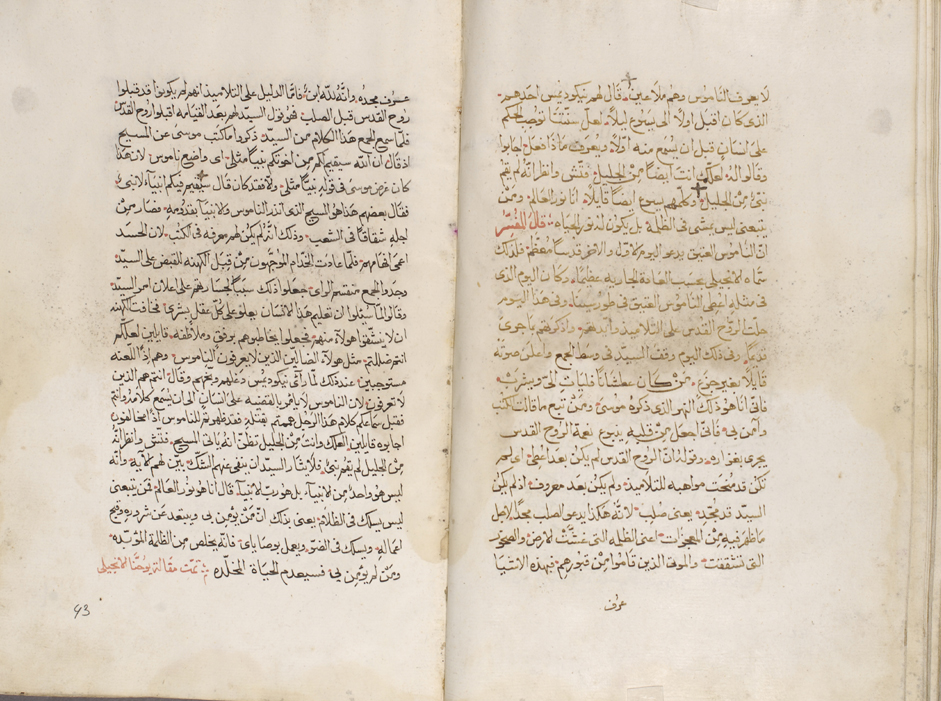 لا يعرف الناموس وهم ملاعين٠ قال لهم نيكوديمس احدهم٠
الذى كان اقبل اولا الى يسوع ليلا٠ لعل سنتنا توجب الحكم
على انسان قبل ان يسمع منه اولا ويعرف ماذا فعل٠ اجابوا
وقالوا له لعلك انت ايضا من الجليل٠ فتش وانظر انه لم يقم
نبى من الجليل٠ وكلمهم يسوع ايضا قايلا٠ انا نور العالم٠ ومن
يتبعنى ليس يمشى فى الظلمة بل يكون له نور الحياة٠ قال المفسر
ان الناموس العتيق يدعو اليوم الاول والاخر قدسا معظم٠ فلذلك
سماه الانجيلى بحسب العادة الجاريه عظيما٠ وكان اليوم الذى
فى مثله اعطى الناموس العتيق فى طور سينا٠ وفى هذا اليوم
حلت الروح القدس على التلاميذ وايدهم٠ واذكرهم بما جرى
قديما٠ وفى ذلك اليوم وقف السيد فى وسط الجمع واعلن صوته
قايلا بغير جزع٠ من كان عطشانا فليات الى ويشرب٠
فانى انا هو ذلك النهر الذى ذكره موسى٠ ومن تبع ما قالت الكتب
وآمن بى٠ فانى اجعل من قلبه ينبوع نعمة الروح القدس
يجرى بغزاره٠ وقوله ان الروح القدس لم يكن بعد اعطى٠ اى لم
تكن قد منحت مواهبه للتلاميذ٠ ولم يكن بعد معروف٠ اذ لم يكن
السيد قد مجد٠ يعنى صلب٠ لانه هكذا يدعو الصلب مجدا لاجل
ما ظهر فيه من المعجزات٠ اعنى الظلمه التى غشت الارض٠ والصخور
التى تشققت٠ والموتى الذين قاموا من قبورهم٠ فبهذه الاشيا
عرف
عرف مجده٠ وانه لله ابن٠ فاما الدليل على التلاميذ انهم لم يكونوا قد قبلوا
روح القدس قبل الصلب٠ فهو قول السيد لهم بعد القيامه اقبلوا روح القدس
فلما سمع الجمع هذا الكلام من السيد٠ ذكروا ما كتب موسى عن المسيح
اذ قال ان الله سيقيم لكم من اخوتكم نبيا مثلى٠ اى واضع ناموس٠ لان هذا
كان غرض موسى فى قوله نبيا مثلى٠ والا فقد كان قال سيقيم فيكم انبيآ لا نبى٠
فقال بعضهم هذا هو المسيح الذى انذر الناموس والانبيآ بقدومه٠ فصار من
اجله شقاقا فى الشعب٠ وذلك انه لم يكن لهم معرفه فى الكتب٠ لان الحسد
اعمى افهامهم٠ فلما عادت الخدام الموجهون من قبل الكهنه للقبض على السيد٠
وجدوا الجمع منقسم الراى٠ جعلوا ذلك سببا لجسارتهم على اعلان امر السيد٠
وقالوا لما سئلوا ان تعليم هذا الانسان يعلو على كل عقل بشرى٠ فخافت الكهنه
ان لا يشقوا هولآء منهم٠ فجعلوا يخاطبوهم برفق وملاطفه٠ قايلين لعلكم
انتم ضللتم٠ مثل هولآء الضالين الذين لا يعرفون الناموس٠ وهم اذا اللعنه
مستوجبين٠ عند ذلك لما رآى نيكوديمس دغلهم وبخهم وقال٠ انتم هم الذين
لا تعرفون٠ لان الناموس لا يامر بالقضيه على انسان الى ان يسمع كلامه وانتم
فقبل سماعكم كلام هذا الرجل هممتم بقتله٠ فقد ظهر انكم للناموس اذا مخالفون
اجابوه قايلين العلك وانت من الجليل تظن انه ياتى المسيح٠ فتش وانظر انه
من الجليل لم يقم نبى٠ فلما شآ السيد ان ينفى عنهم الشك٠ بين لهم لاهيه وانه
ليس هو واحدا من الانبيآء بل هو رب الانبيآء٠ قال انا هو نور العالم فمن يتبعنى
ليس يسلك فى الظلام٠ يعنى بذلك ان من يؤمن بى ويبتعد عن شروره وقبح
اعماله٠ ويسلك فى الضو٠ ويعمل بوصاياى٠ فانه يخلص من الظلمة المؤبده٠
ومن لم يؤمن بى فسيعدم الحياة المخلده٠ تمت مقالة يوحنا الانجيلى
43